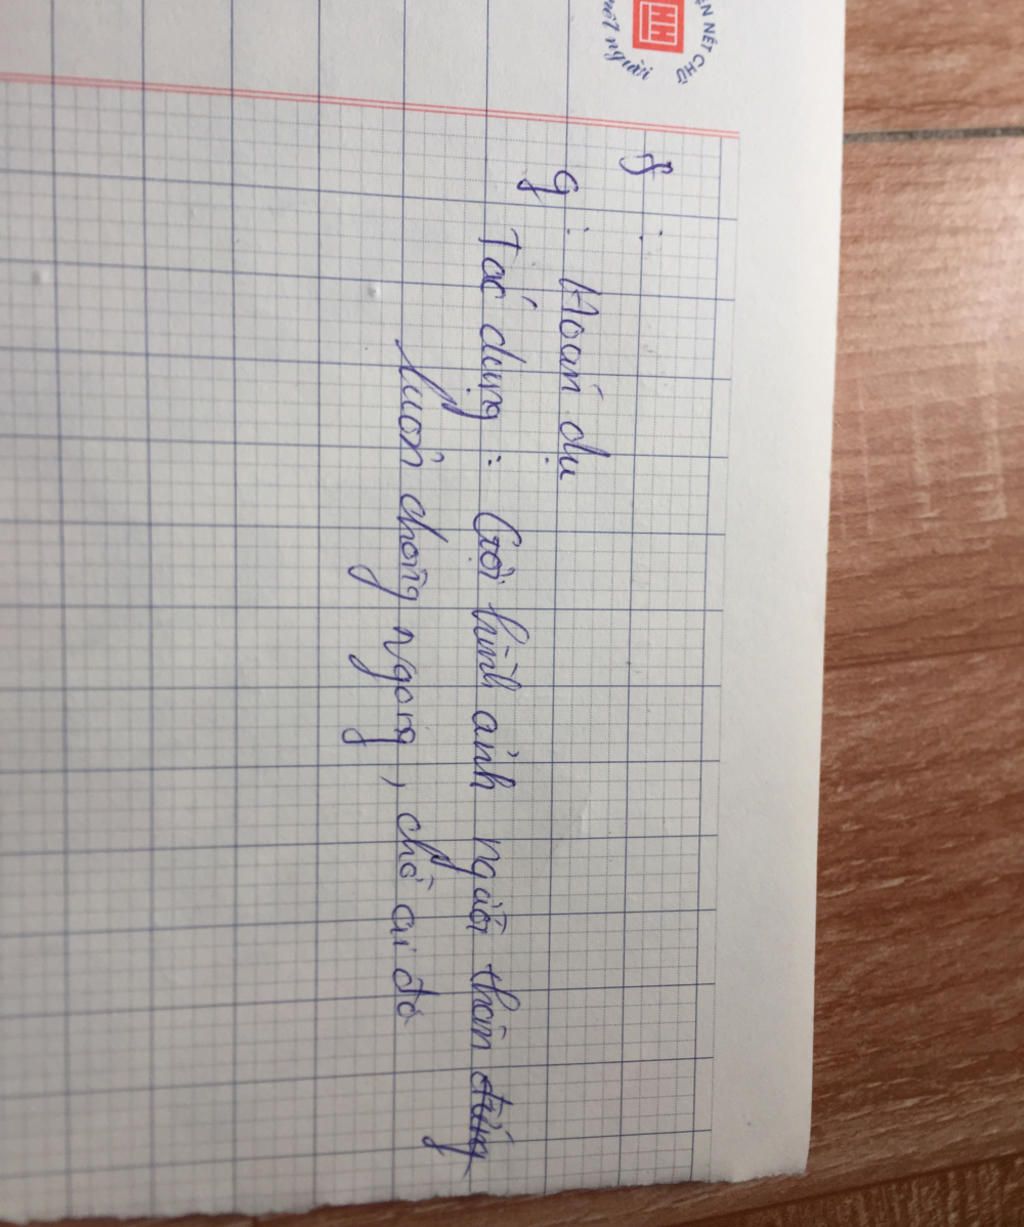 ỆN NẾT CHỮ
nết người
f :
g : Hoán dụ
Tác dụng : Gợi hình ảnh người thôn
luôn chông ngóng, chờ ai đó